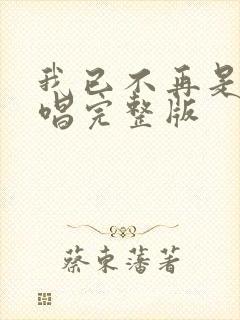 我已不再是
唱完整版
蔡东藩著